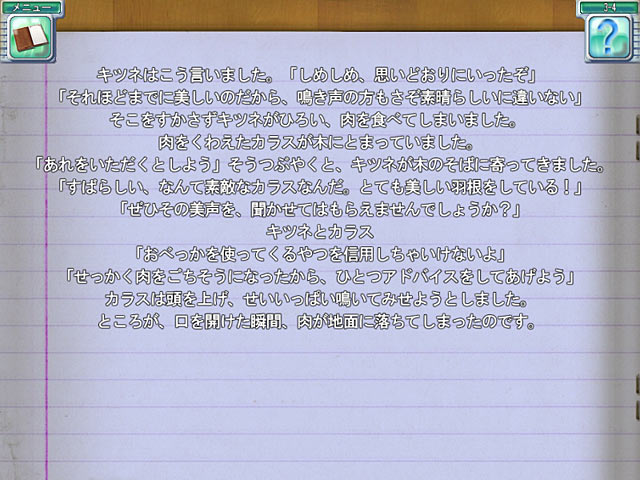 メニュー
3-4
キツネはこう言いました。「しめしめ、思いどおりにいったぞ」
「それほどまでに美しいのだから、鳴き声の方もさぞ素晴らしいに違いない」
そこをすかさずキツネがひろい、肉を食べてしまいました。
肉をくわえたカラスが木にとまっていました。
「あれをいただくとしよう」そうつぶやくと、キツネが木のそばに寄ってきました。
「すばらしい、なんて素敵なカラスなんだ。とても美しい羽根をしている！」
「ぜひその美声を、聞かせてはもらえませんでしょうか？」
キツネとカラス
「おべっかを使ってくるやつを信用しちゃいけないよ」
「せっかく肉をごちそうになったから、ひとつアドバイスをしてあげよう」
カラスは頭を上げ、せいいっぱい鳴いてみせようとしました。
ところが、口を開けた瞬間、肉が地面に落ちてしまったのです。